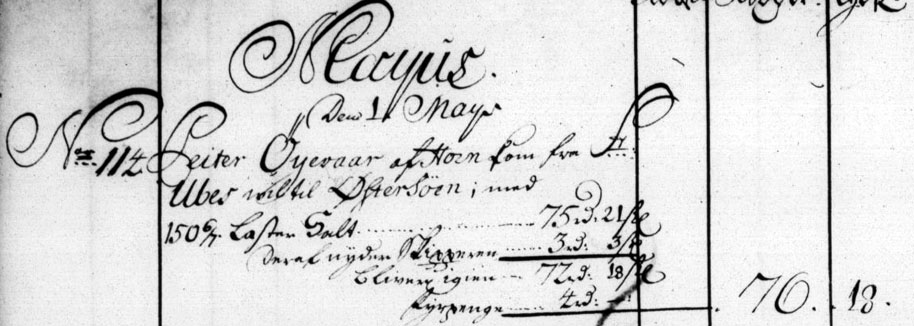 Mayus.
Den 1 May
No. 114 Peiter Oyevaar af Horn kom fra St:
Ubes wil til Østersöen; med
150 6/7. Laster Salt ........ 75rd: 21ß
Deraf nyder Skipperen ..... 3rd: 3ß
bliver igien .... 72rd: 18ß
Fyrpenge ..... 4rd: — . 76. 18.